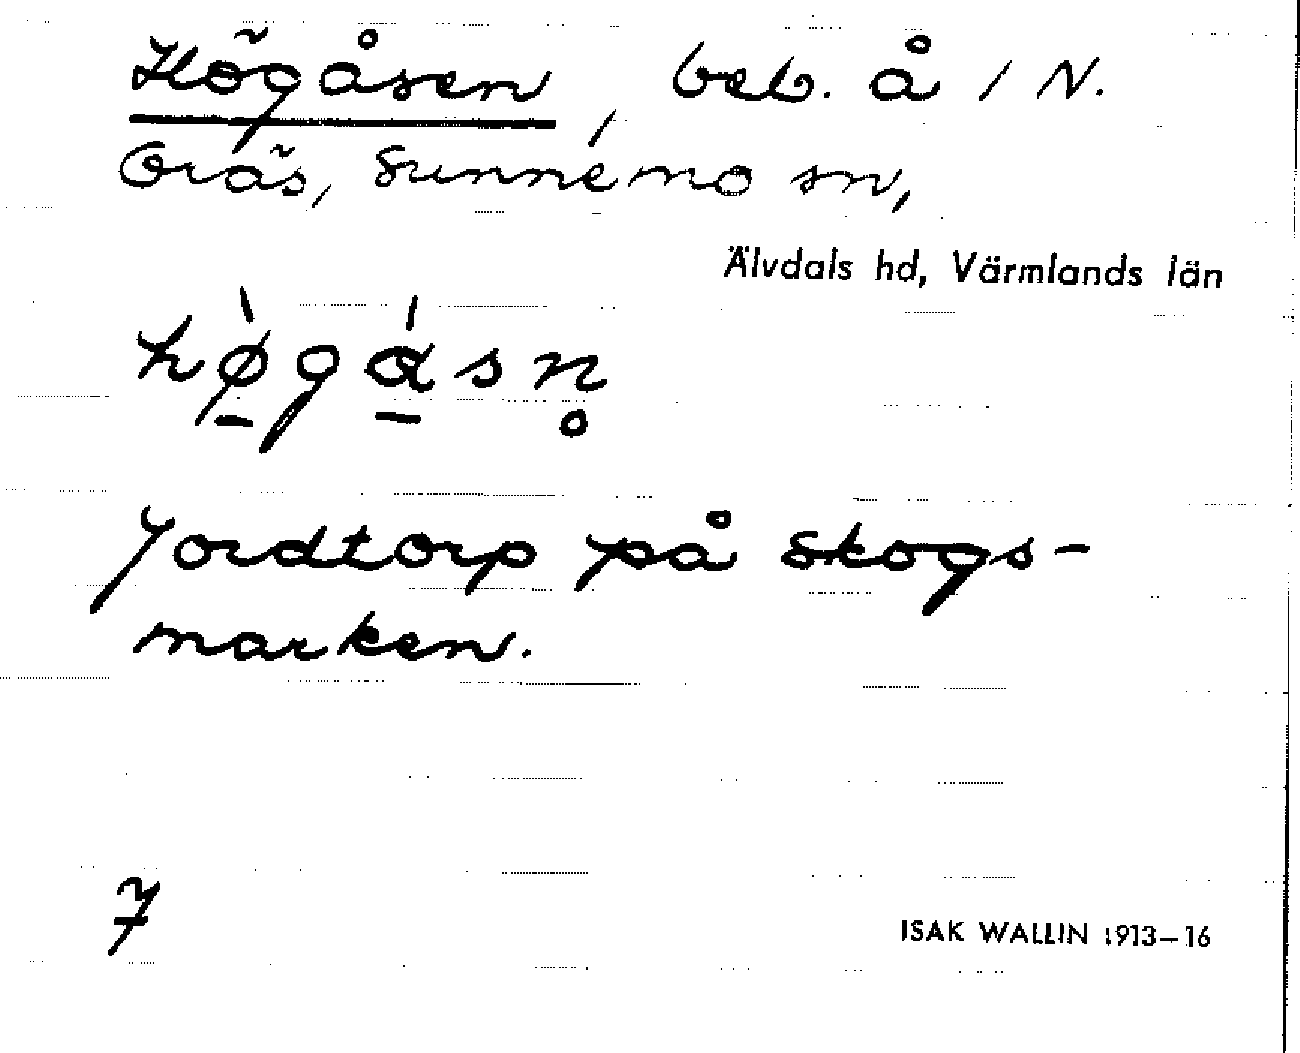 Högåsen, beb. å 1 N.
Gräs, Sunnemo sn,
Älvdals hd, Värmlands län
hǿ̠gɑ̠́sn̥
Jordtorp på skogs-
marken.
7
ISAK WALLIN 1913–16